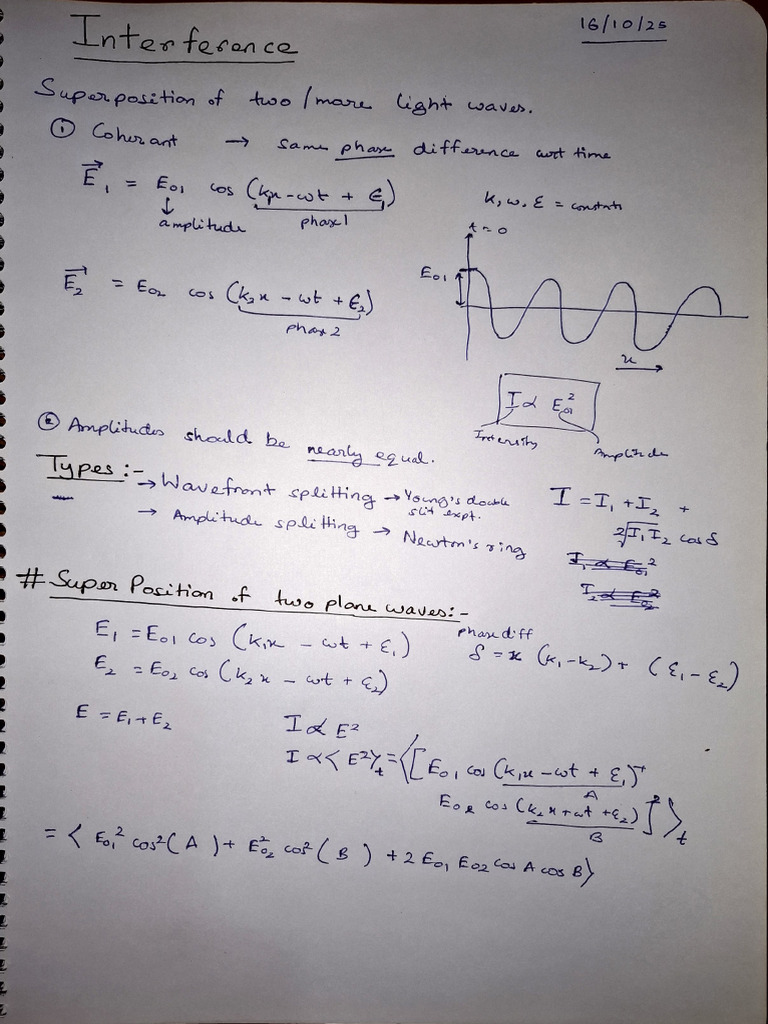 Interference
16/10/25
Superposition of two / more light waves.
① Coherant → same phase difference wrt time
E⃗₁ = E₀₁ cos (kx - ωt + ε₁)
↓
amplitude
phase 1
k, ω, ε = constants
t = 0
E₀₁
x
E⃗₂ = E₀₂ cos (k₂x - ωt + ε₂)
phase 2
I ∝ E₀₁²
Intensity
Amplitude
② Amplitudes should be nearly equal.
Types :-
→ Wavefront splitting → Young's double slit expt.
→ Amplitude splitting → Newton's ring
I = I₁ + I₂ +
2√I₁I₂ cos δ
I₁ ∝ E₀₁²
I₂ ∝ E₀₂²
# Super Position of two plane waves:-
E₁ = E₀₁ cos (k₁x - ωt + ε₁)
E₂ = E₀₂ cos (k₂x - ωt + ε₂)
phase diff
δ = x (k₁-k₂) + (ε₁ - ε₂)
E = E₁ + E₂
I ∝ E²
I ∝ <E²>ₜ = <[E₀₁ cos (k₁x - ωt + ε₁) +
A
E₀₂ cos (k₂x + ωt + ε₂)]²>ₜ
B
= < E₀₁² cos² (A) + E₀₂² cos² (B) + 2 E₀₁ E₀₂ cos A cos B>